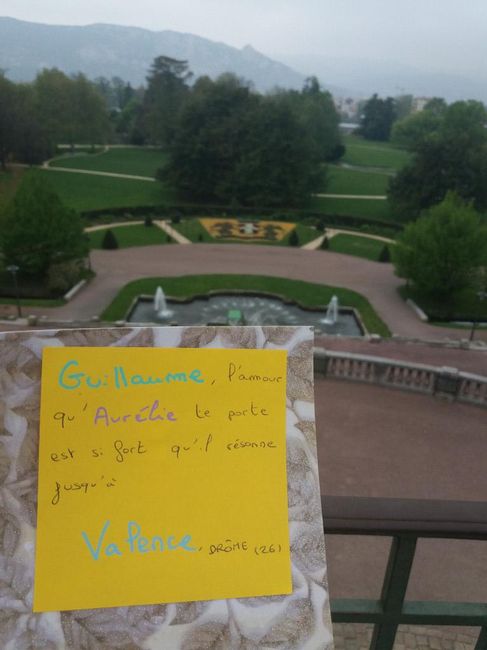 Guillaume, l'amour
qu'Aurélie te porte
est si fort qu'il résonne
jusqu'à
Valence, DRÔME (26)